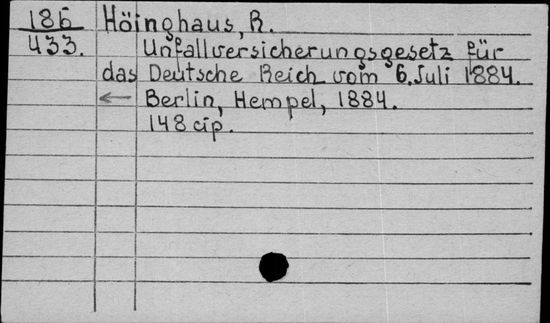 186 Höinghaus, R.
433. Unfallversicherungsgesetz für
das Deutsche Reich vom 6. Juli 1884.
← Berlin, Hempel, 1884.
148 cip.